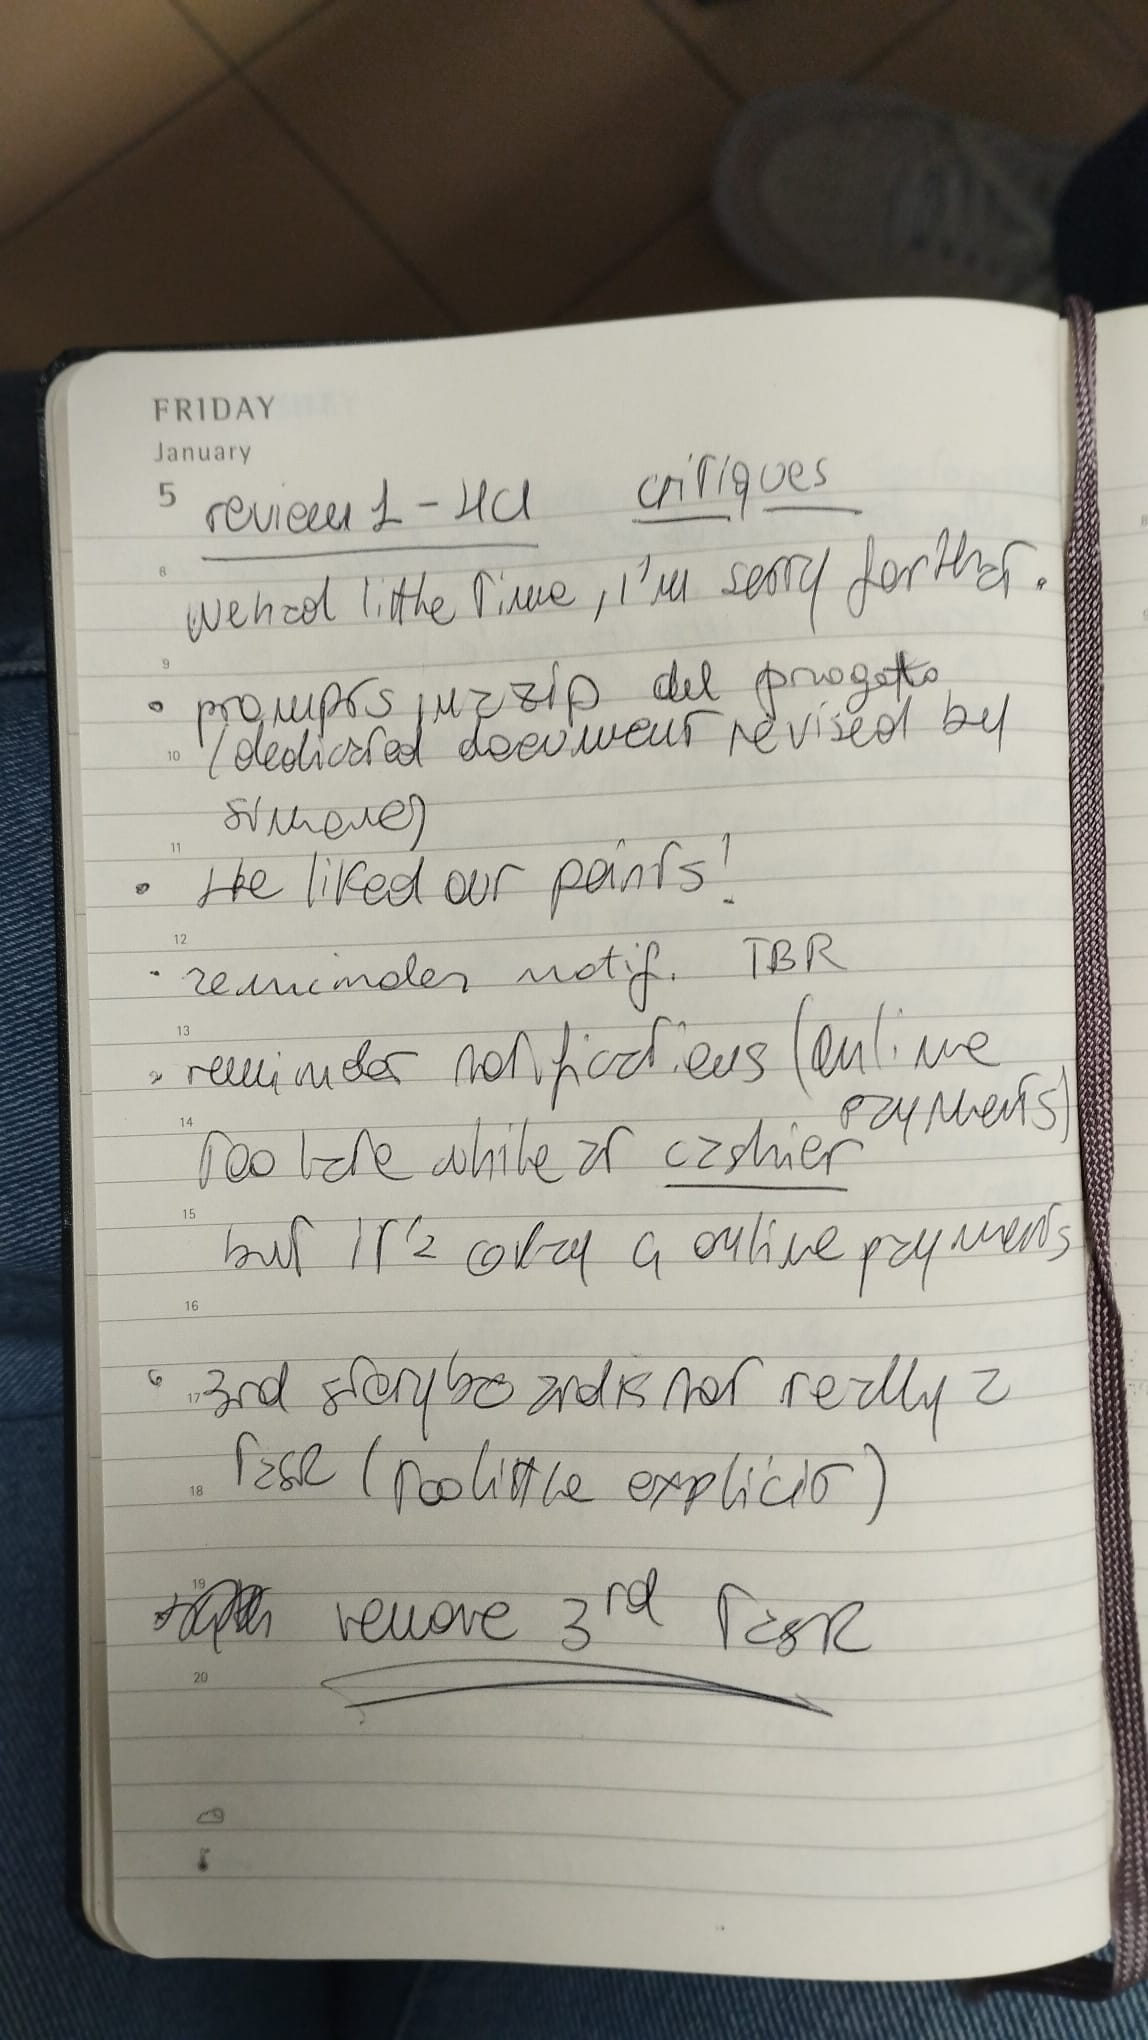 FRIDAY
January
5 review 1 - HCI critiques
8
We had little time, I'm sorry for that.
9
• prompts in zip del progetto
10 (dedicated document revised by
simone)
11
• He liked our points!
12
• reminder notif. TBR
13
• reminder notifications (online
payments)
14
too late while at cashier
15
but it's okay 4 online payments
16
• 17 3rd storyboard is not really a
18 task (too little explicit)
19
remove 3rd task
20